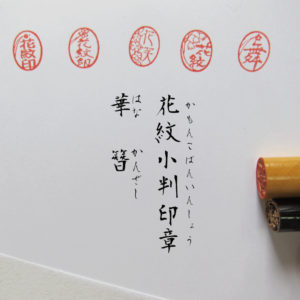 花紋印
花紋印
花紋
花紋小判印章
かもんこばんいんしょう
華簪
はなかんざし